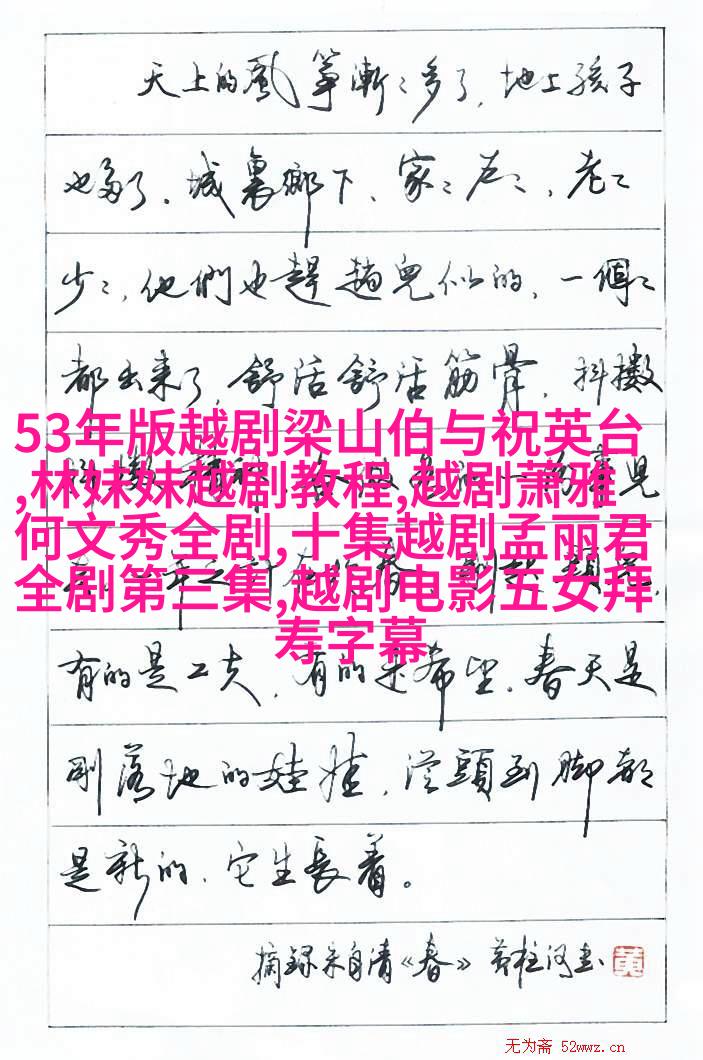 天上的風箏漸〻多了，地上孩子
也多了。城裏鄉下，家〻户〻，老〻
少〻，他們也趕趟兒似的，一個〻
都出来了，舒活舒活筋骨，抖擻
53年版越剧梁山伯与祝英台
,林妹妹越剧教程,越剧萧雅
何文秀全剧,十集越剧孟丽君
全剧第三集,越剧电影五女拜
寿字幕
有的是工夫，有的是希望。春天是
剛落地的娃娃，從頭到脚都
是新的，它生長着。
摘録朱自清《春》 黄柱河書
黄
无为斋 52wwz.cn